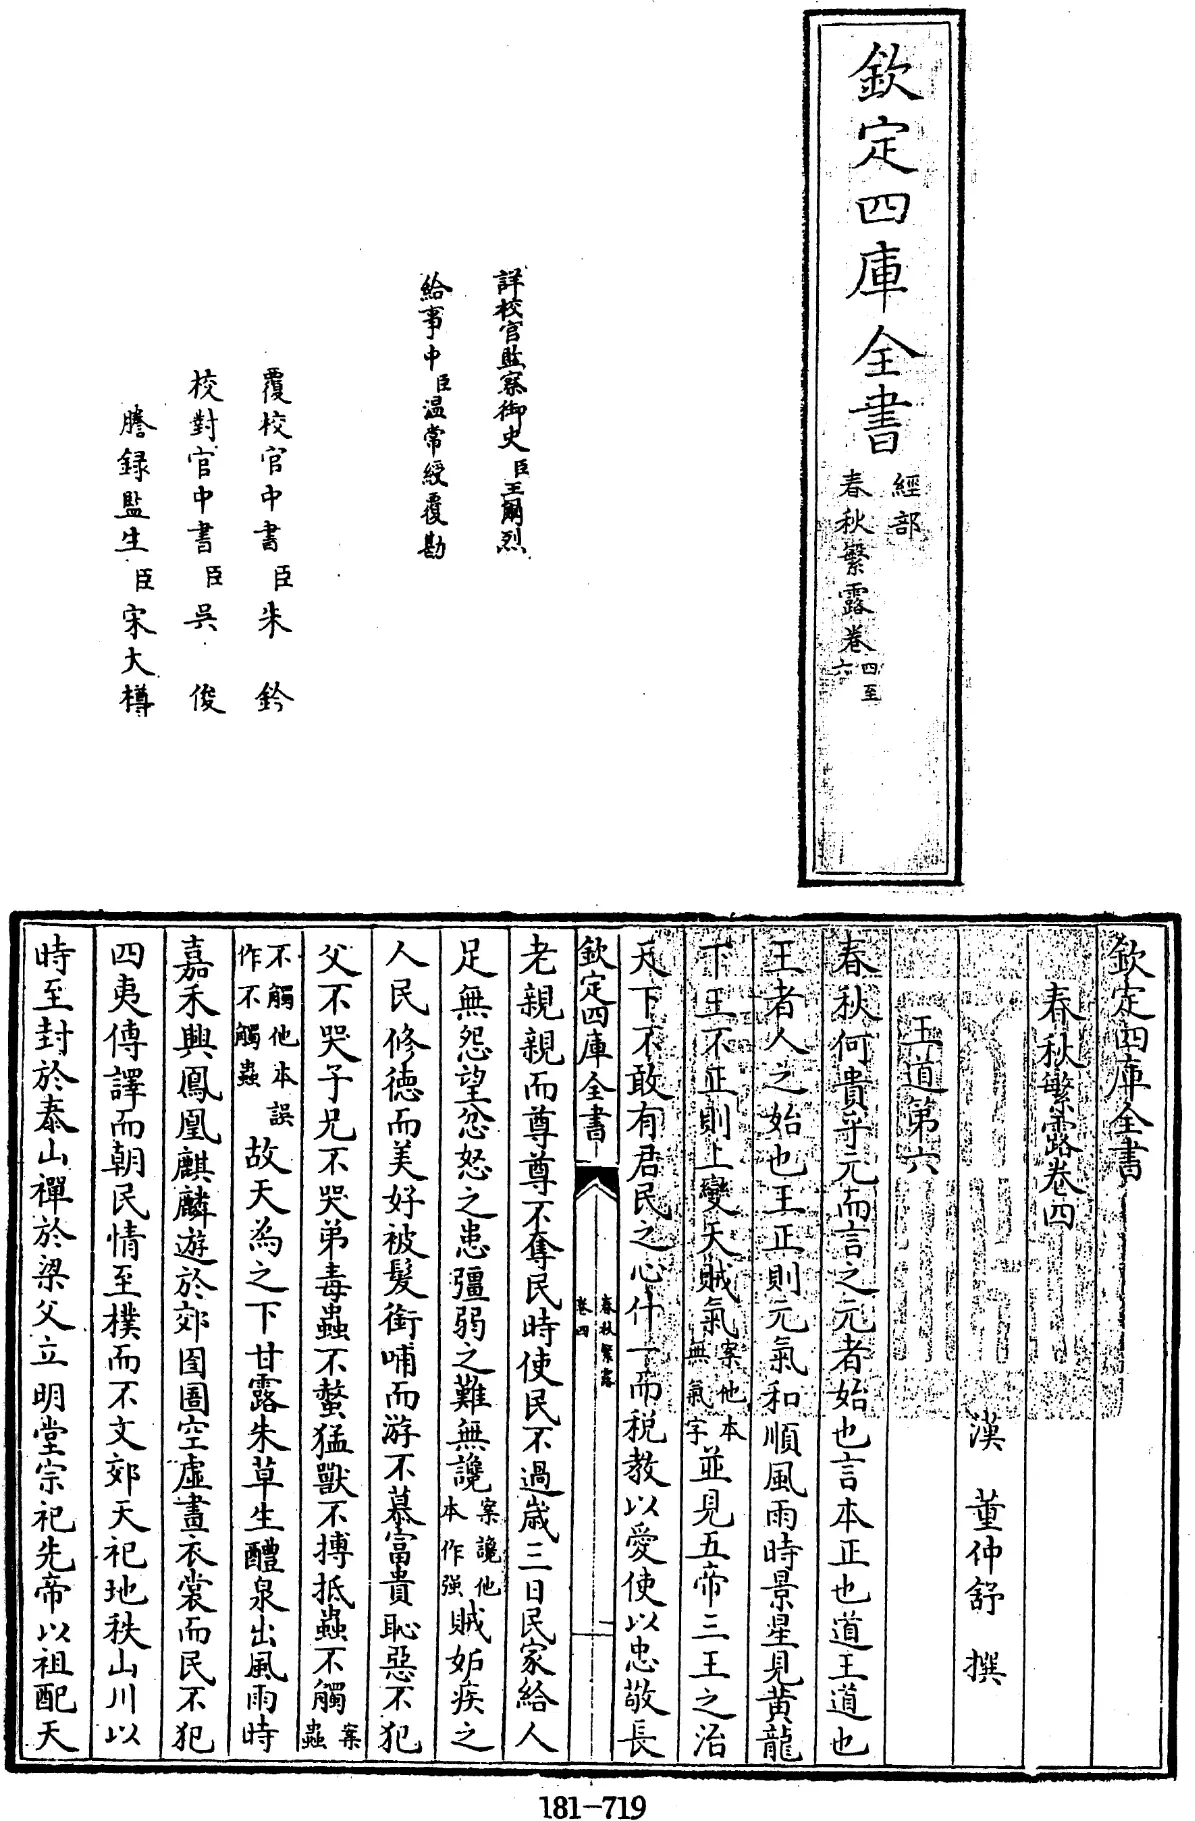 欽定四庫全書
經部
春秋繁露卷四至六
詳校官監察御史臣王爾烈
給事中臣温常綬覆勘
覆校官中書臣朱鈐
校對官中書臣吳俊
謄録監生臣宋大樽
欽定四庫全書
春秋繁露卷四
漢 董仲舒 撰
王道第六
春秋何貴乎元而言之元者始也言本正也道王道也
王者人之始也王正則元氣和順風雨時景星見黄龍
下王不正則上變天賊氣案他本無氣字並見五帝三王之治
天下不敢有君民之心什一而税教以愛使以忠敬長
欽定四庫全書
春秋繁露
卷四
一
老親親而尊尊不奪民時使民不過歳三日民家給人
足無怨望忿怒之患彊弱之難無讒案讒他本作强賊妒疾之
人民修德而美好被髮銜哺而游不慕富貴恥惡不犯
父不哭子兄不哭弟毒蟲不螫猛獸不搏抵蟲不觸案蟲
不觸他本誤作不觸蟲故天為之下甘露朱草生醴泉出風雨時
嘉禾興鳳凰麒麟遊於郊囹圄空虛畫衣裳而民不犯
四夷傳譯而朝民情至樸而不文郊天祀地秩山川以
時至封於泰山禪於梁父立明堂宗祀先帝以祖配天
181-719